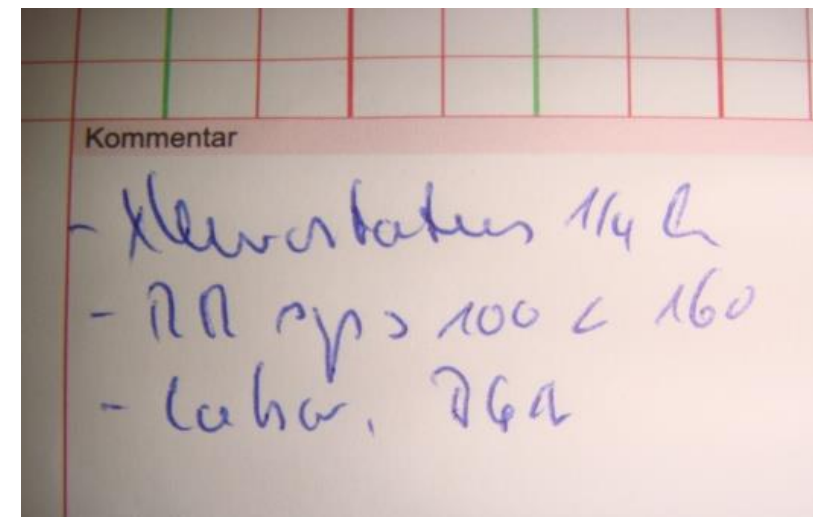 Kommentar
- Neurostatus 1/4 h
- RR sys > 100 < 160
- Labor, BGA